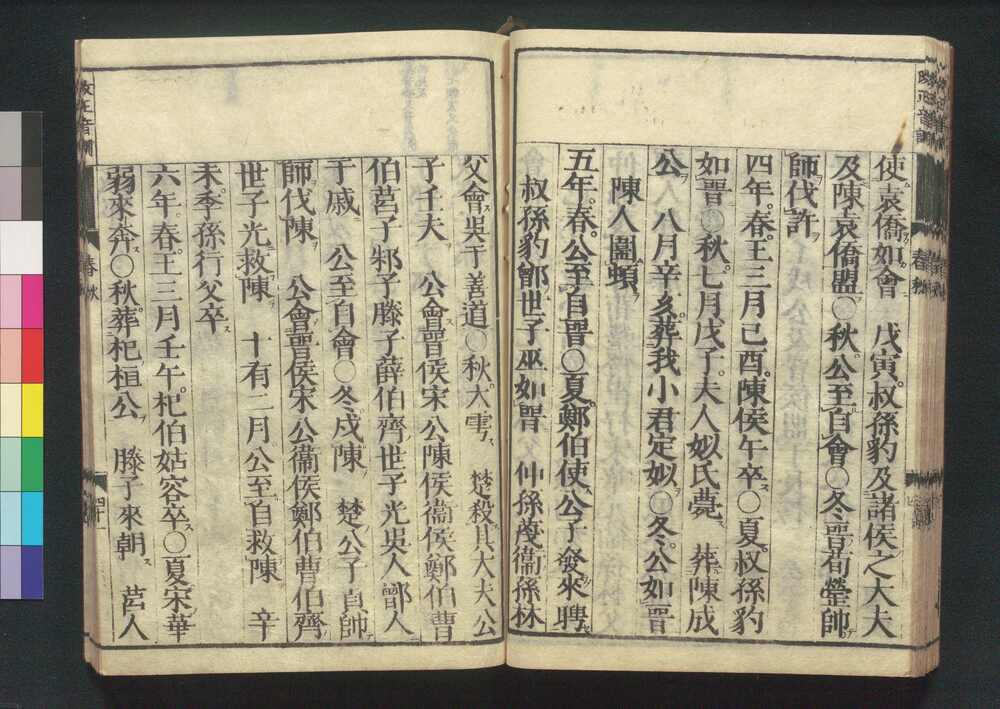 使袁僑如會　戊寅叔孫豹及諸侯之大夫
及陳袁僑盟○秋公至自會○冬晉荀罃帥
師伐許
四年春王三月己酉陳侯午卒○夏叔孫豹
如晉○秋七月戊子夫人姒氏薨　葬陳成
公　八月辛亥葬我小君定姒○冬公如晉
陳人圍頓
五年春公至自晉○夏鄭伯使公子發來聘
叔孫豹鄫世子巫如晉　仲孫蔑衞孫林
父會吳于善道○秋大雩　楚殺其大夫公
子壬夫　公會晉侯宋公陳侯衞侯鄭伯曹
伯莒子邾子滕子薛伯齊世子光吳人鄫人
于戚　公至自會○冬戍陳　楚公子貞帥
師伐陳　公會晉侯宋公衞侯鄭伯曹伯齊
世子光救陳　十有二月公至自救陳　辛
未季孫行父卒
六年春王三月壬午杞伯姑容卒○夏宋華
弱來奔○秋葬杞桓公　滕子來朝　莒人
改正音訓
春秋
四十